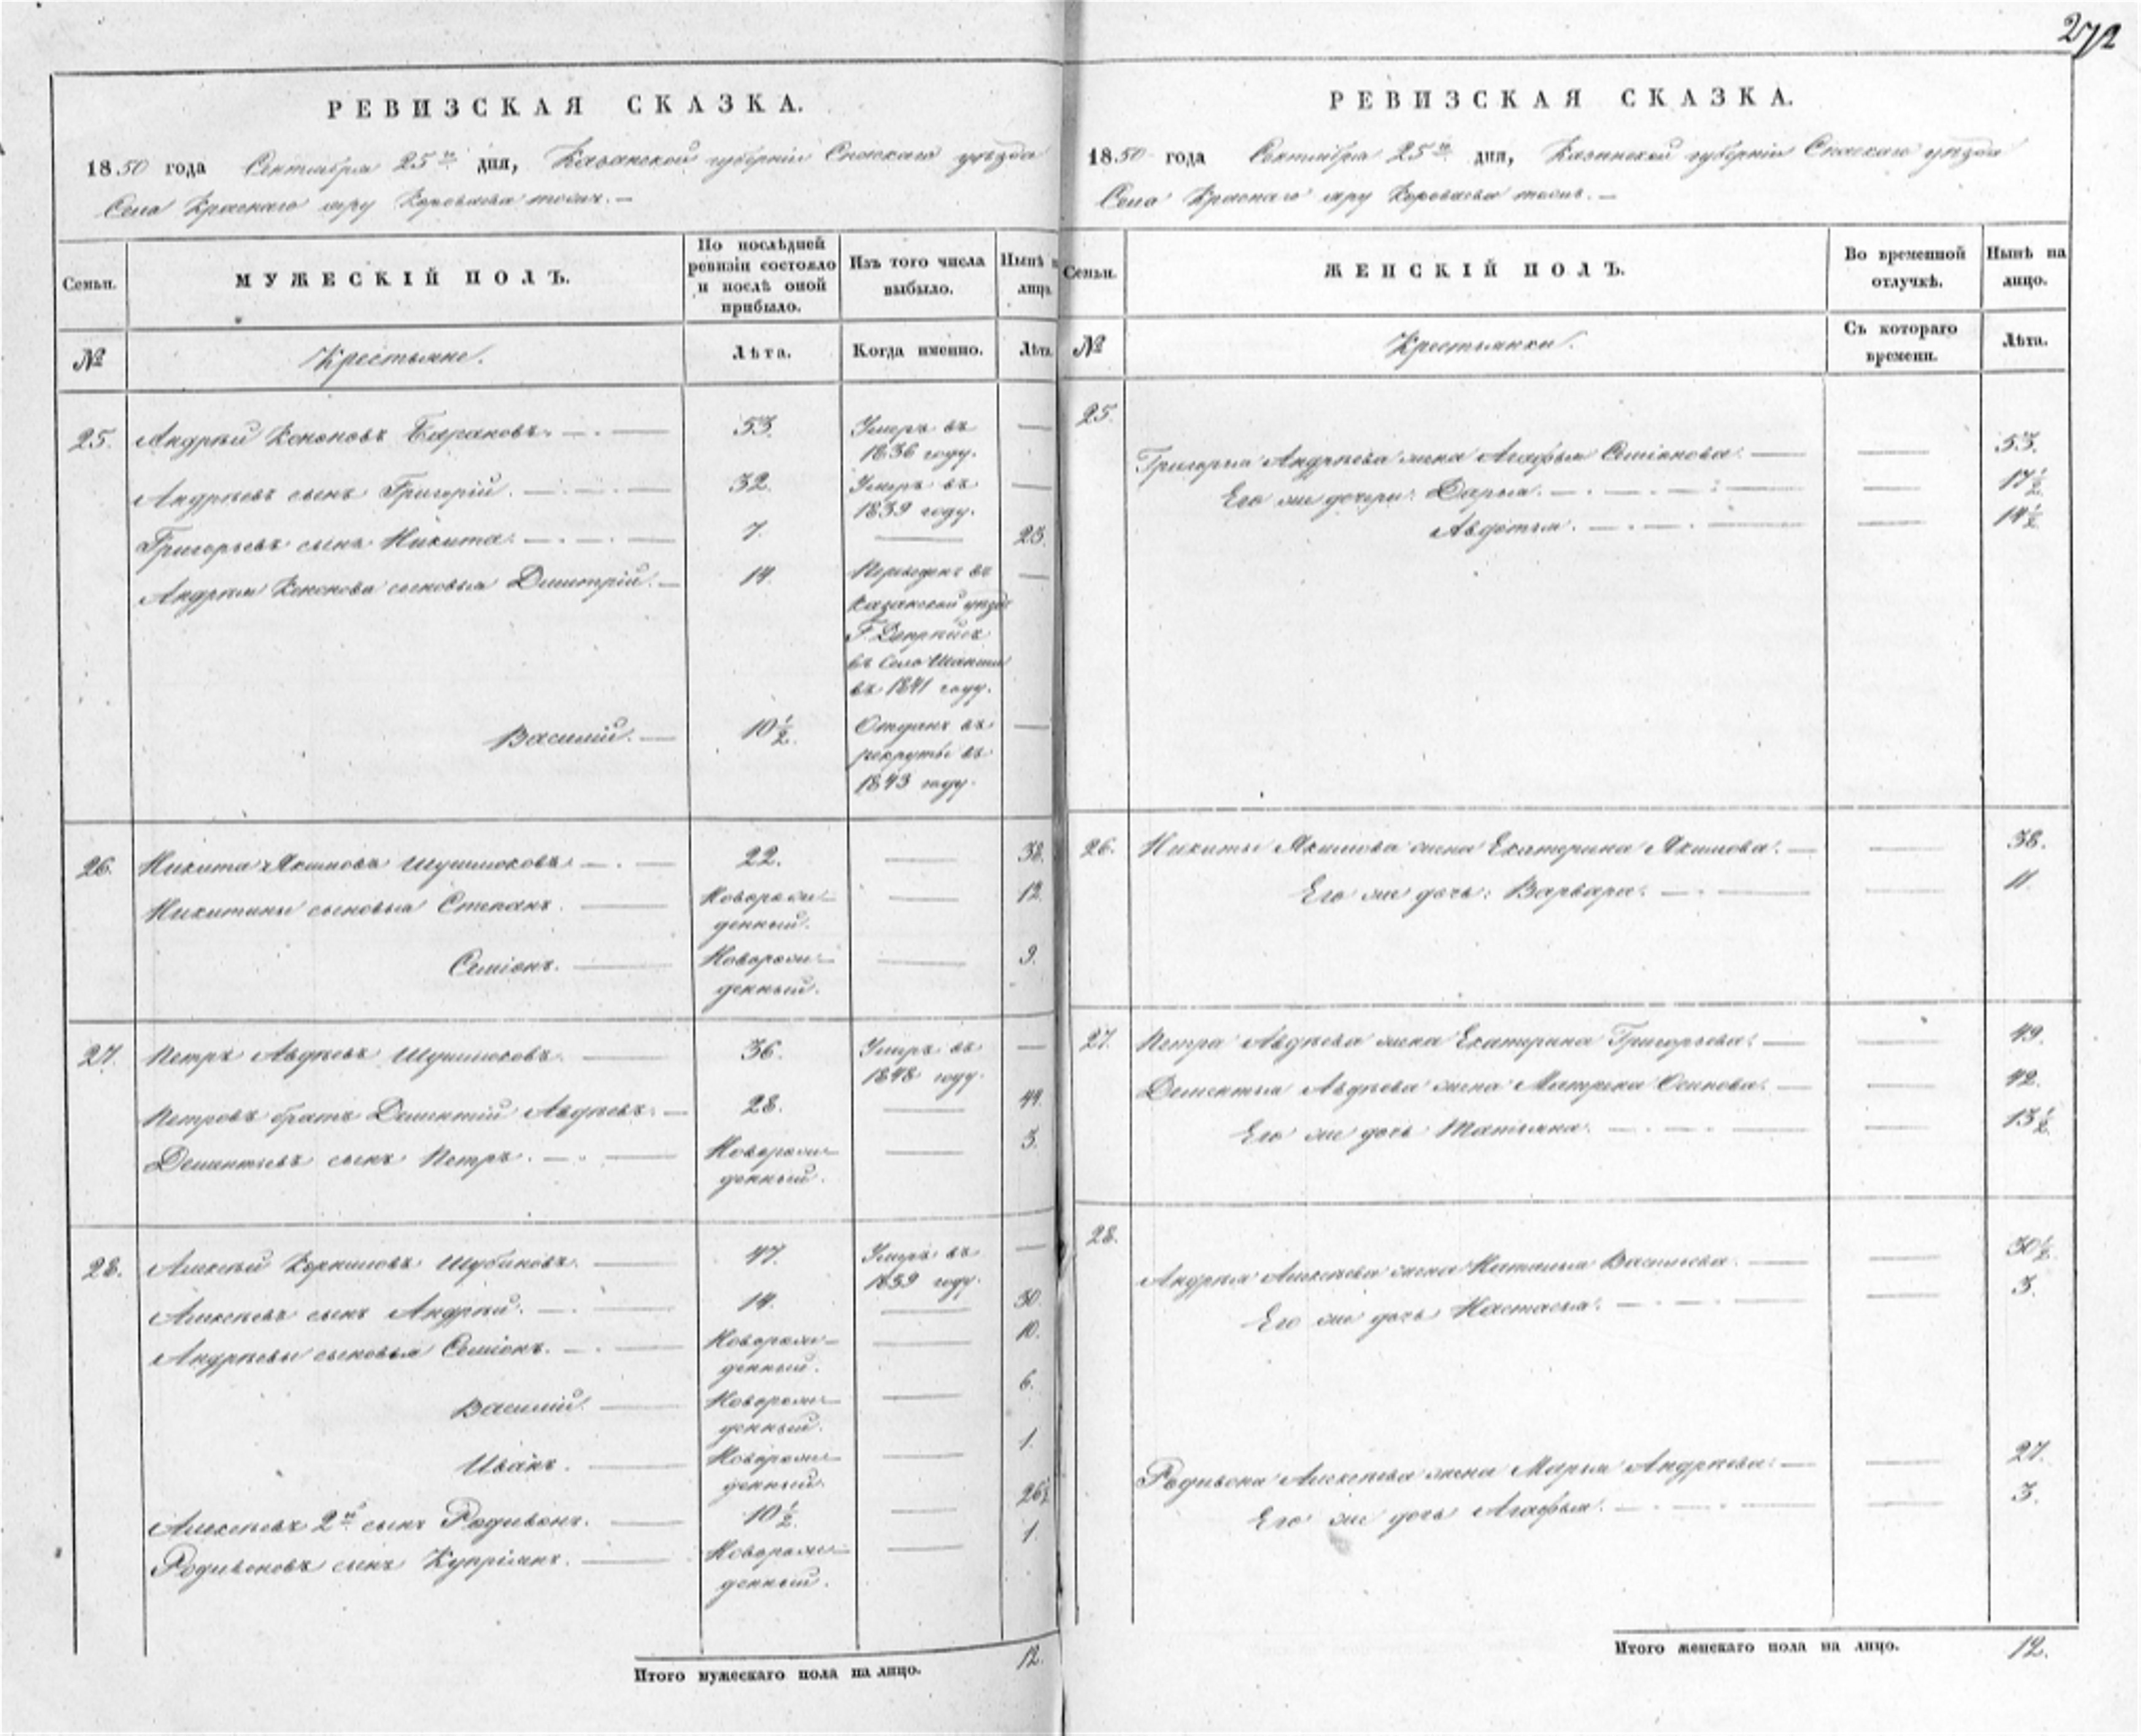 272
РЕВИЗСКАЯ СКАЗКА.
1850 года Сентября 25го дня, Казанской губернiи Спаскаго уѣзда
Села Краснаго яру Короваева тожъ. —
Семьи.
МУЖЕСКIЙ ПОЛЪ.
По послѣдней
ревизiи состояло
и послѣ оной
прибыло.
Изъ того числа
выбыло.
Нынѣ н
лицо
№
Крестьяне.
Лѣта.
Когда именно.
Лѣта
25. Андрѣй Кононовъ Барановъ. 53. Умеръ въ —
1836 году.
Андрѣевъ сынъ Григорiй. 32. Умеръ въ —
1839 году.
Григорьевъ сынъ Никита. 7. — 23.
Андрѣя Кононова сыновья Дмитрiй. 14. въ —
Казанской уѣздъ
Г.
въ Село
въ 1841 году.
Василiй. 10 1/2. Отданъ въ —
рекруты въ
1843 году.
26. Никита Якимовъ 22. — 38.
Никитины сыновья Степанъ. Новорож- — 12.
денный.
Семiонъ. Новорож- — 9.
денный.
27. Петръ Авдѣевъ 36. Умеръ въ —
1848 году.
Петровъ братъ Дементiй Авдѣевъ. 28. — 44.
Дементьевъ сынъ Петръ. Новорож- — 3.
денный.
28. Алексѣй Корниловъ Шубиновъ. 47. Умеръ въ —
1839 году.
Алексѣевъ сынъ Андрѣй. 14. — 30.
Андрѣевы сыновья Семiонъ. Новорож- — 10.
денный.
Василiй. Новорож- — 6.
денный.
Иванъ. Новорож- — 1.
денный.
Алексѣевъ 2й сынъ Родивонъ. 10 1/2. — 26 1/2
Родивоновъ сынъ Купрiянъ. Новорож- — 1.
денный.
Итого мужескаго пола на лицо. 12.
РЕВИЗСКАЯ СКАЗКА.
1850 года Сентября 25го дня, Казанской губернiи Спаскаго уѣзда
Села Краснаго яру Короваева тожъ. —
Семьи.
ЖЕНСКIЙ ПОЛЪ.
Во временной
отлучкѣ.
Нынѣ на
лицо.
№
Крестьянки.
Съ котораго
времени.
Лѣта.
25.
Григорья Андрѣева жена Агафья Семiонова. — 53.
Его же дочери: Дарья. — 17 1/2
Авдотья. — 14 1/2
26. Никиты Якимова жена Екатерина Якимова. — 38.
Его же дочь: Варвара. — 11.
27. Петра Авдѣева жена Екатерина Григорьева. — 49.
Дементья Авдѣева жена Матрена Осипова. — 42.
Его же дочь Татьяна. — 13 1/2
28.
Андрѣя Алексѣева жена Наталья Васильева. — 30 1/2
Его же дочь Настасья. — 3.
Родивона Алексѣева жена Марья Андрѣева. — 27.
Его же дочь Агафья. — 3.
Итого женскаго пола на лицо. 12.